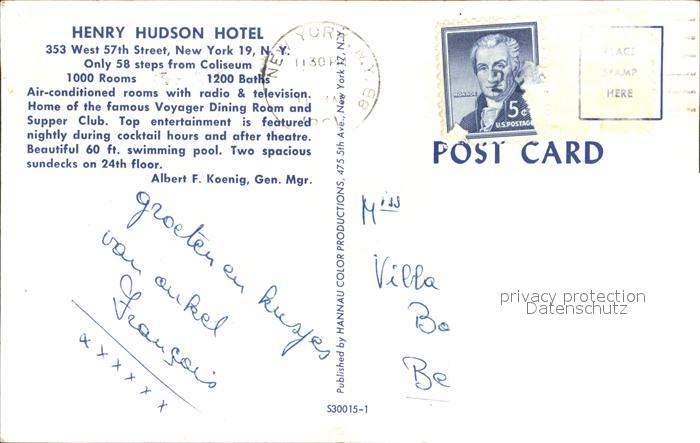 HENRY HUDSON HOTEL
353 West 57th Street, New York 19, N. Y.
Only 58 steps from Coliseum
1000 Rooms 1200 Baths
Air-conditioned rooms with radio & television.
Home of the famous Voyager Dining Room and
Supper Club. Top entertainment is featured
nightly during cocktail hours and after theatre.
Beautiful 60 ft. swimming pool. Two spacious
sundecks on 24th floor.
Albert F. Koenig, Gen. Mgr.
groeten en kusjes
van onkel
François
x x x x x x x
Published by HANNAU COLOR PRODUCTIONS, 475 5th Ave., New York 17, N.Y.
S30015-1
NEW YORK, N.Y.
1130 PM
MONROE
5¢
U.S. POSTAGE
PLACE
STAMP
HERE
POST CARD
Miss
Villa
Bo
Be
privacy protection
Datenschutz